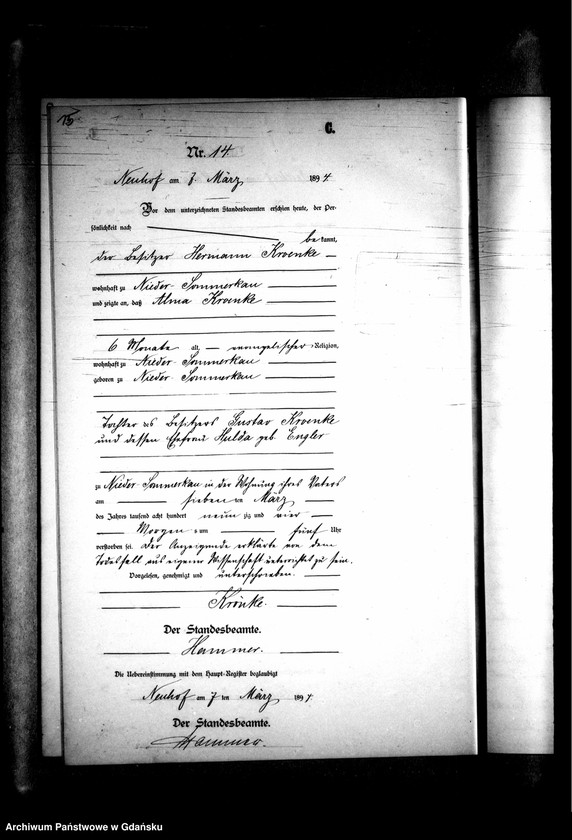 15
C.
Nr. 14
Neuhof am 7. März 1894
Vor dem unterzeichneten Standesbeamten erschien heute, der Per-
sönlichkeit nach
be kannt,
der Besitzer Hermann Kroenke
wohnhaft zu Nieder-Sommerkau
und zeigte an, daß Alma Kroenke
6 Monate alt, evangelischer Religion,
wohnhaft zu Nieder-Sommerkau
geboren zu Nieder-Sommerkau
Tochter des Besitzers Gustav Kroenke
und dessen Ehefrau Hulda geb. Engler
zu Nieder-Sommerkau in der Wohnung ihres Vaters
am sieben ten März
des Jahres tausend acht hundert neun zig und vier
Morgens um fünf Uhr
verstorben sei. Der Anzeigende erklärte von dem
Todesfall aus eigener Wissenschaft unterrichtet zu sein.
Vorgelesen, genehmigt und unterschrieben.
Krönke.
Der Standesbeamte.
Hammer.
Die Uebereinstimmung mit dem Haupt-Register beglaubigt
Neuhof am 7 ten März 1894
Der Standesbeamte.
Hammer.
Archiwum Państwowe w Gdańsku